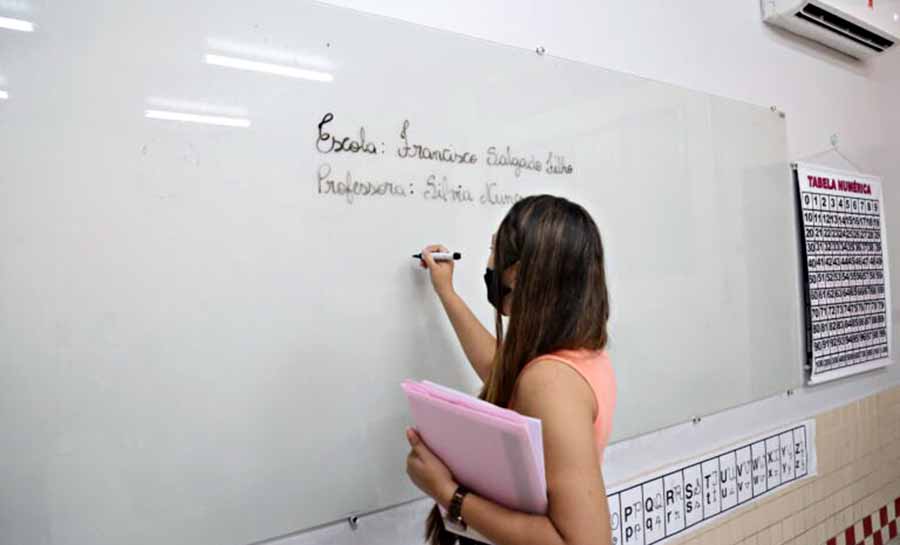 Escola: Francisco Salgado Filho
Professora: Silvia
TABELA NUMÉRICA
0 1 2 3 4 5 6 7 8 9
10 11 12 13 14 15 16 17 18 19
20 21 22 23 24 25 26 27 28 29
30 31 32 33 34 35 36 37 38 39
40 41 42 43 44 45 46 47 48 49
50 51 52 53 54 55 56 57 58 59
60 61 62 63 64 65 66 67 68 69
70 71 72 73 74 75 76 77 78 79
80 81 82 83 84 85 86 87 88 89
90 91 92 93 94 95 96 97 98 99
P Q R S T U V W X Y Z
p q r s t u v w x y z